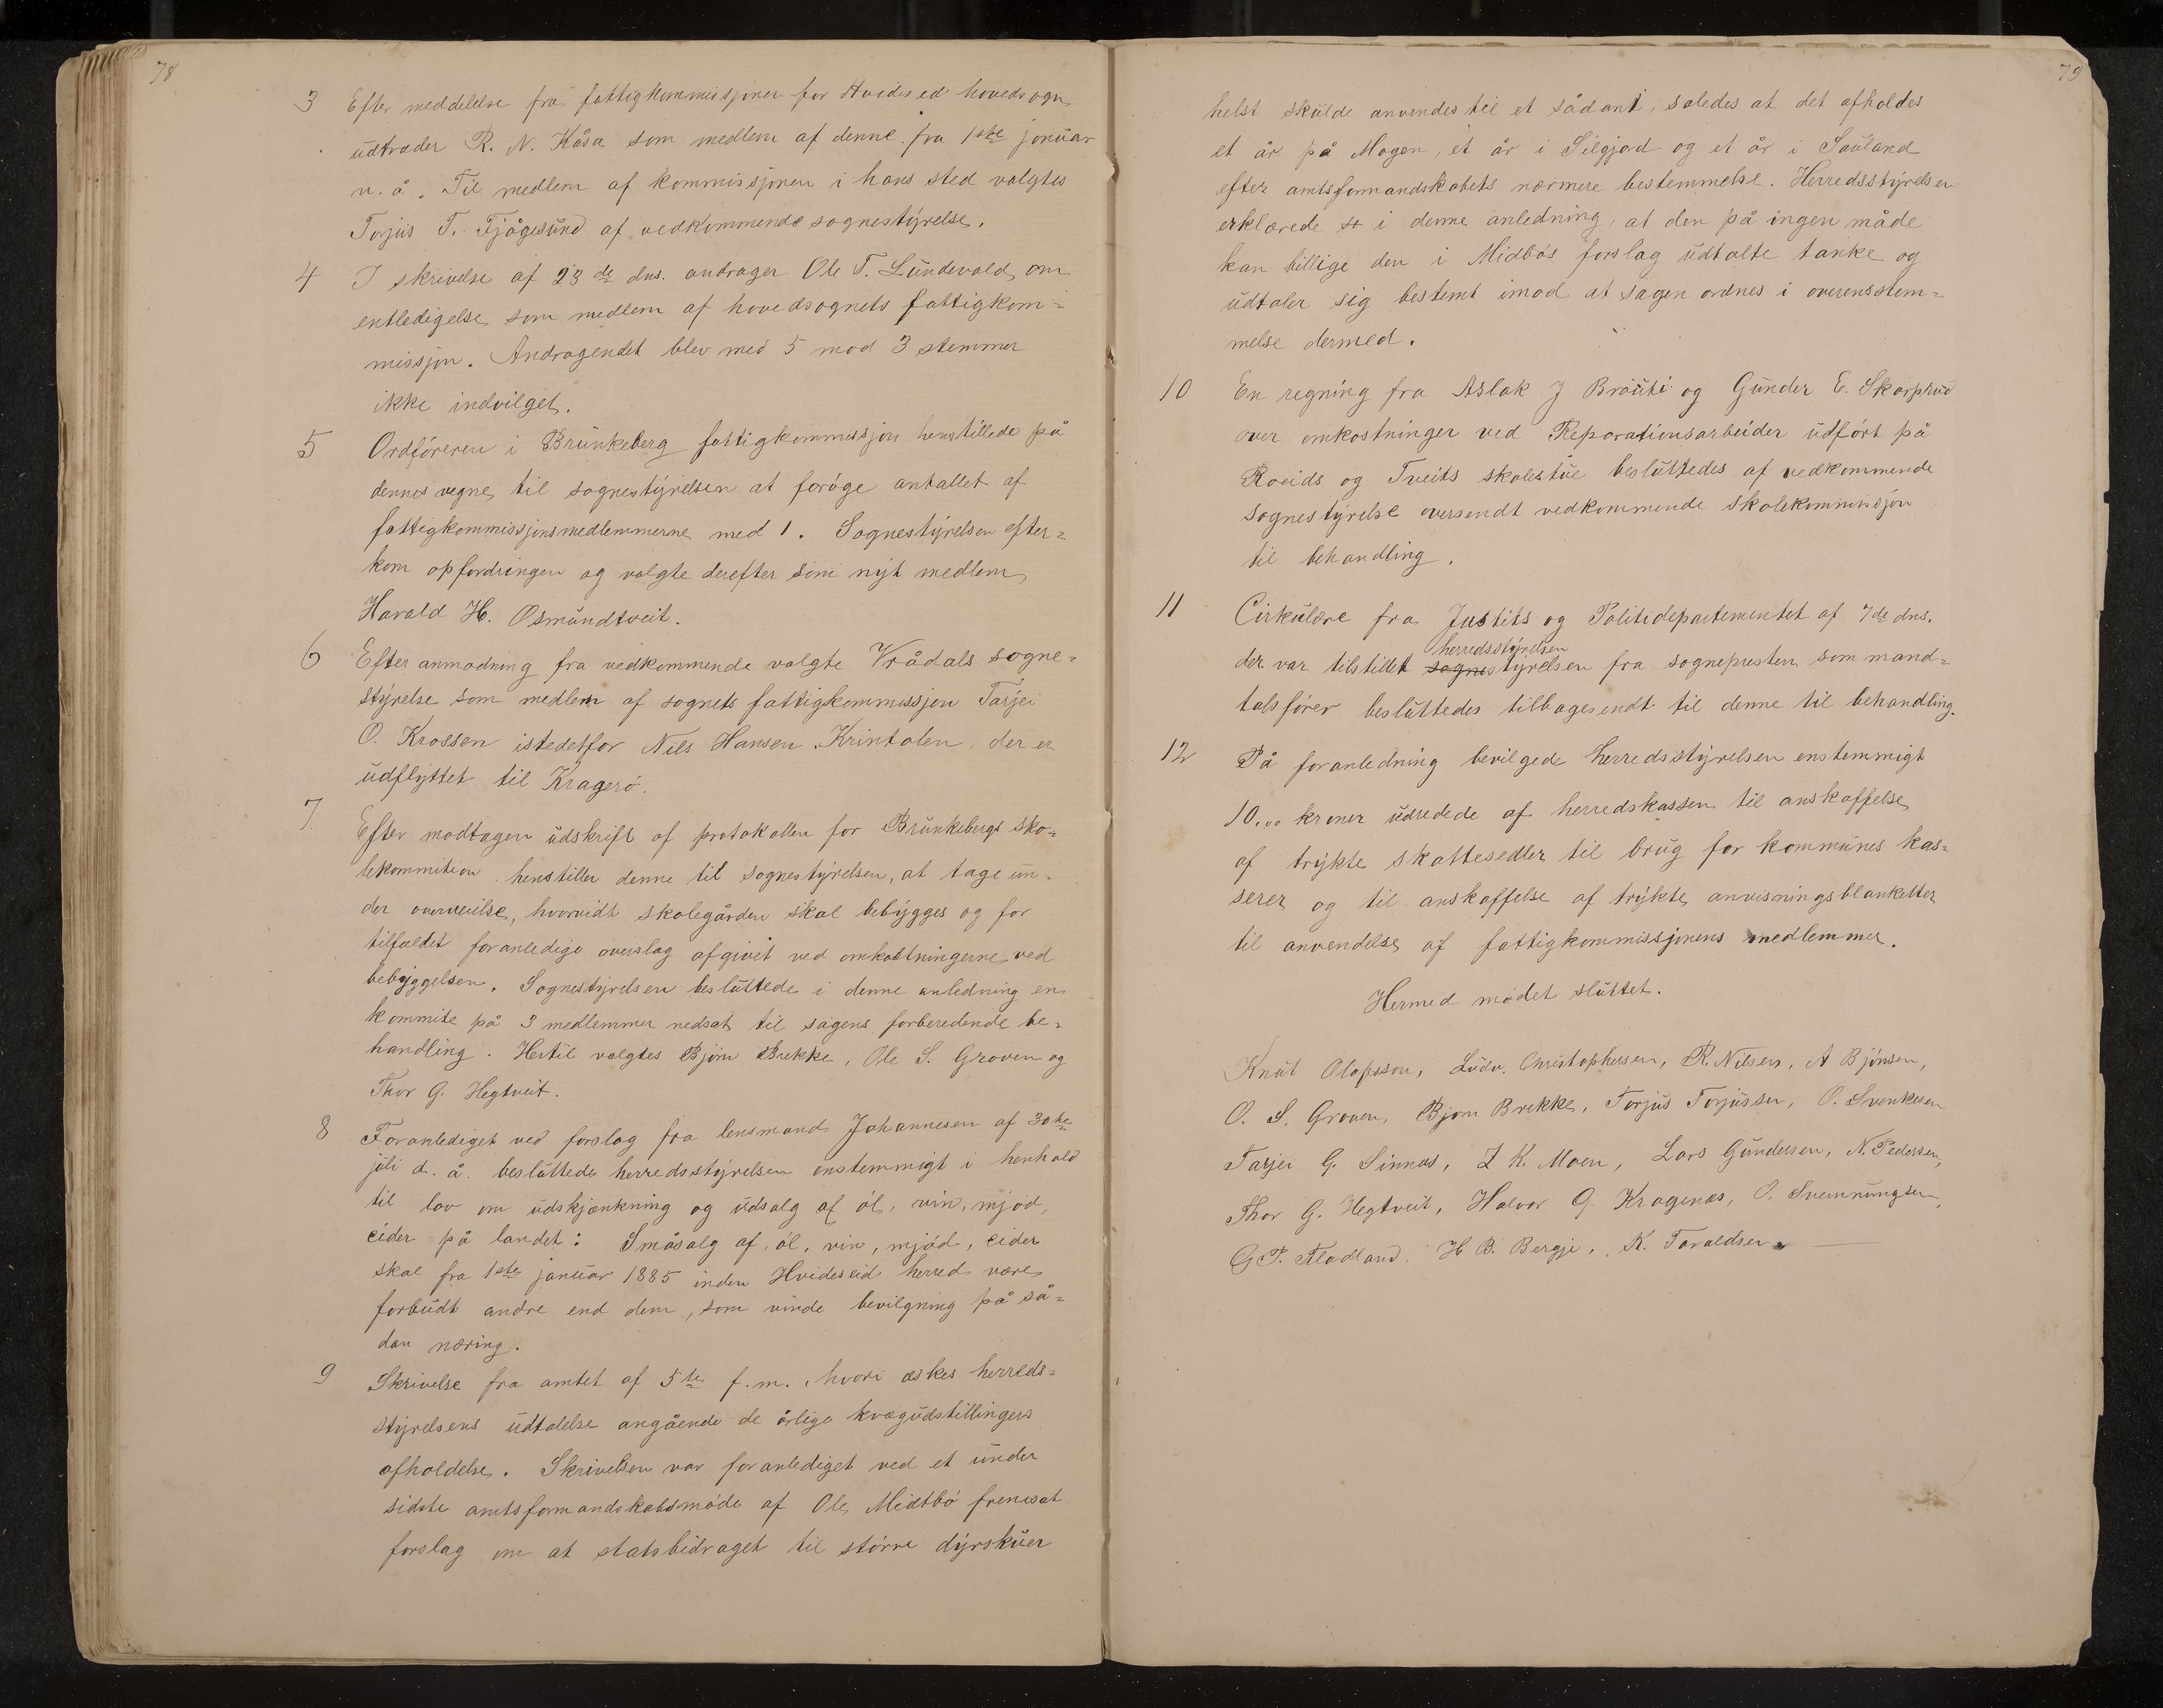 78
3 Efter meddelelse fra fattigkommissjonen for Hvidesed hovedsogn
udtræder R. N. Kåsa som medlem af denne fra 1ste januar
n. å. Til medlem af kommissjonen i hans sted valgtes
Torjus T. Fjågesund af vedkommende sognestyrelse.
4 I skrivelse af 23de dns. andrager Ole T. Lundevald om
entledigelse som medlem af hovedsognets fattigkom=
missjon. Andragendet blev med 5 mod 3 stemmer
ikke indvilget.
5 Ordføreren i Brunkeberg fattigkommissjon henstillede på
dennes vegne til sognestyrelsen at forøge antallet af
fattigkommissjonsmedlemmerne med 1. Sognestyrelsen efter=
kom opfordringen og valgte derefter som nyt medlem
Harald H. Osmundtveit.
6 Efter anmodning fra vedkommende valgte Vrådals sogne=
styrelse som medlem af sognets fattigkommissjon Tarjei
O. Krossen istedetfor Nils Hansen Krintolen, der er
udflyttet til Kragerø.
7 Efter modtagen udskrift af protokollen for Brunkebergs sko=
lekommition henstiller denne til sognestyrelsen, at tage un=
der overveielse, hvorvidt skolegården skal bebygges og for
tilfældet foranledige overslag afgivet ved omkostningerne ved
bebyggelsen. Sognestyrelsen besluttede i denne anledning en
kommite på 3 medlemmer nedsat til sagens forberedende be=
handling. Hertil valgtes Bjørn Brekke, Ole S. Groven og
Thor G. Hegtveit.
8 Foranlediget ved forslag fra lensmand Johannesen af 30te
juli d. å. besluttede herredsstyrelsen enstemmigt i henhold
til lov om udskjænkning og udsalg af øl, vin, mjød,
cider på landet: Småsalg af øl, vin, mjød, cider
skal fra 1ste januar 1885 inden Hvideseid herred være
forbudt andre end dem, som vinde bevilgning på så=
dan næring.
9 Skrivelse fra amtet af 5te f. m. hvori æskes herreds=
styrelsens udtalelse angående de årlige kvægudstillingers
afholdelse. Skrivelsen var foranlediget ved et under
sidste amtsformandskabsmøde af Ole Midtbø fremsat
forslag om at statsbidraget til større dyrskuer
79
helst skulde anvendes til et sådant, således at det afholdes
et år på Mogen, et år i Silgjord og et år i Sauland
efter amtsformandskabets nærmere bestemmelse. Herredsstyrelsen
erklærede i denne anledning, at den på ingen måde
kan billige den i Midbøs forslag udtalte tanke og
udtaler sig bestemt imod at sagen ordnes i overensstem=
melse dermed.
10 En regning fra Aslak J Bråuti og Gunder E. Skarprud
over omkostninger ved Reparationsarbeider udført på
Roeids og Tveits skolestue besluttedes af vedkommende
sognestyrelse oversendt vedkommende skolekommissjon
til behandling.
11 Cirkulære fra Justits og Politidepartementet af 7de dns.
herredsstyrelsen
der var tilstillet sognestyrelsen fra sognepresten som mand=
talsfører besluttedes tilbagesendt til denne til behandling.
12 På foranledning bevilgede herredsstyrelsen enstemmigt
10.00 kroner udredede af herredskassen til anskaffelse
af trykte skattesedler til brug for kommunes kas=
serer og til anskaffelse af trykte anvisningsblanketter
til anvendelse af fattigkommissjonens medlemmer.
Hermed mødet sluttet.
Knut Olafsson, Ludv. Christophersen, R. Nilsen, A Bjønsen,
O. S. Groven, Bjørn Brekke, Torjus Torjussen, O. Svenkesen
Tarjei G. Sinnæs, L K. Moen, Lars Gundersen, N. Pedersen,
Thor G. Hegtveit, Halvor G. Kragenæs, O. Svennungsen,
G T. Flodland, H B. Bergje, K. Taraldsen.